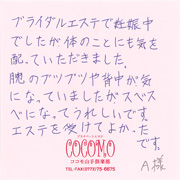 ブライダルエステで妊娠中
でしたが体のことにも気を
配っていただきました。
腕のブツブツや背中が気
になっていましたがスベス
ベになってうれしいです。
エステを受けてよかった
です。
A様
COCOMO
ココモ山手倶楽部
TEL・FAX(0773)75-6675